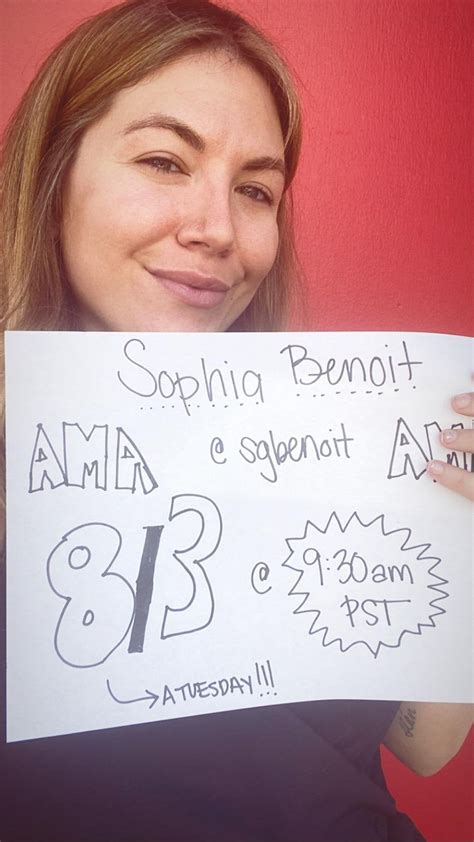 Sophia Benoit
AMA @ sgbenoit AMA
8/3 @ 9:30am
PST
A TUESDAY!!!